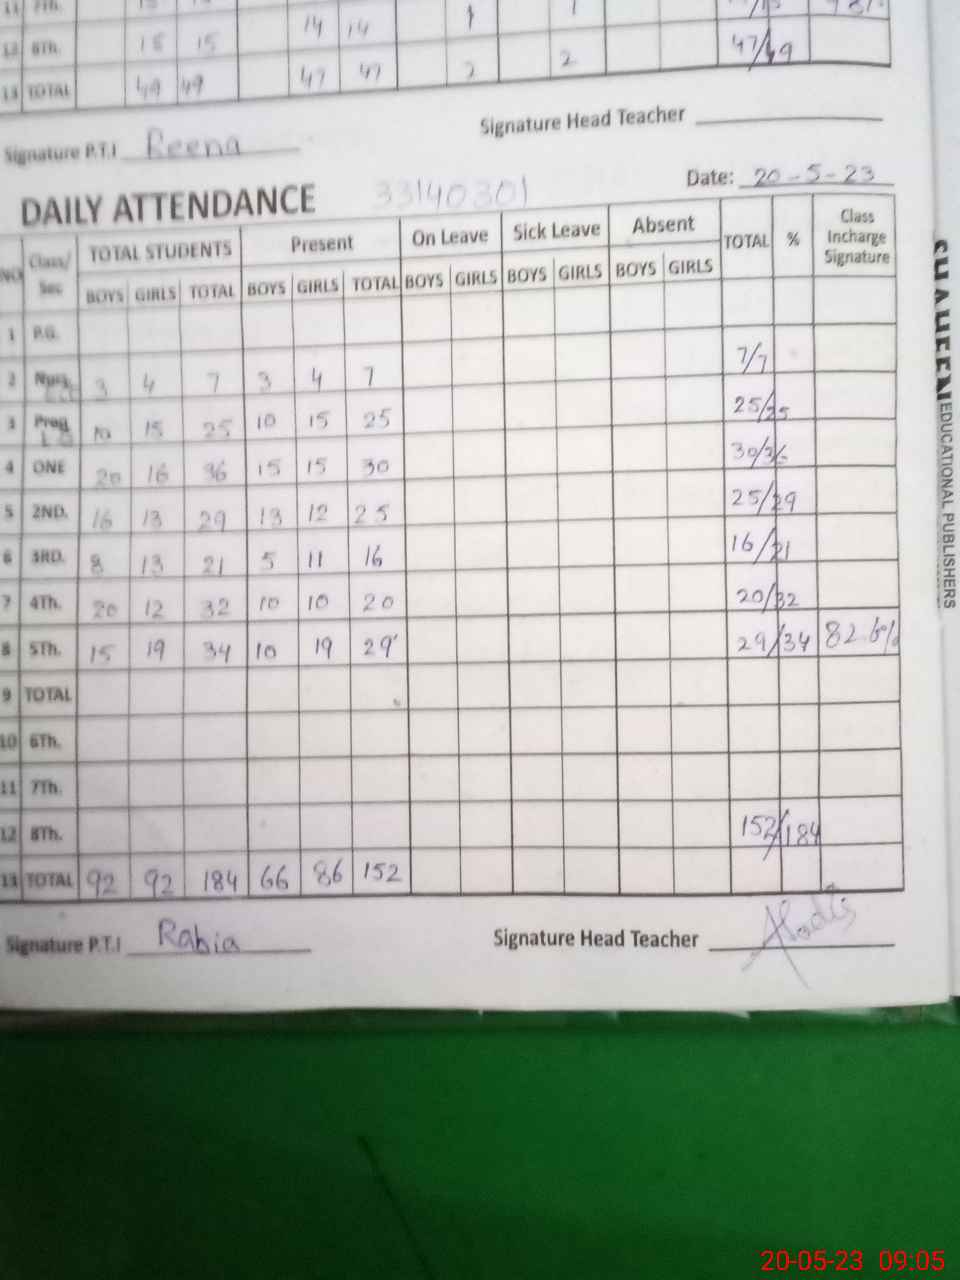 11 7th.
12 8Th. 15 15 14 14 1 1 47/49
13 TOTAL 49 49 47 47 2 2
Signature P.T.I Reena Signature Head Teacher
DAILY ATTENDANCE 33140301 Date: 20-5-23
NO Class/ Sec TOTAL STUDENTS Present On Leave Sick Leave Absent TOTAL % Class Incharge Signature
BOYS GIRLS TOTAL BOYS GIRLS TOTAL BOYS GIRLS BOYS GIRLS BOYS GIRLS
1 P.G.
2 Nur. 3 4 7 3 4 7 7/7
3 Prep 10 15 25 10 15 25 25/25
4 ONE 20 16 36 15 15 30 30/36
5 2ND. 16 13 29 13 12 25 25/29
6 3RD. 8 13 21 5 11 16 16/21
7 4Th. 20 12 32 10 10 20 20/32
8 5Th. 15 19 34 10 19 29 29/34 82.6%
9 TOTAL
10 6Th.
11 7Th.
12 8Th. 152/184
13 TOTAL 92 92 184 66 86 152
Signature P.T.I Rabia Signature Head Teacher
SHAHEEN EDUCATIONAL PUBLISHERS
20-05-23 09:05